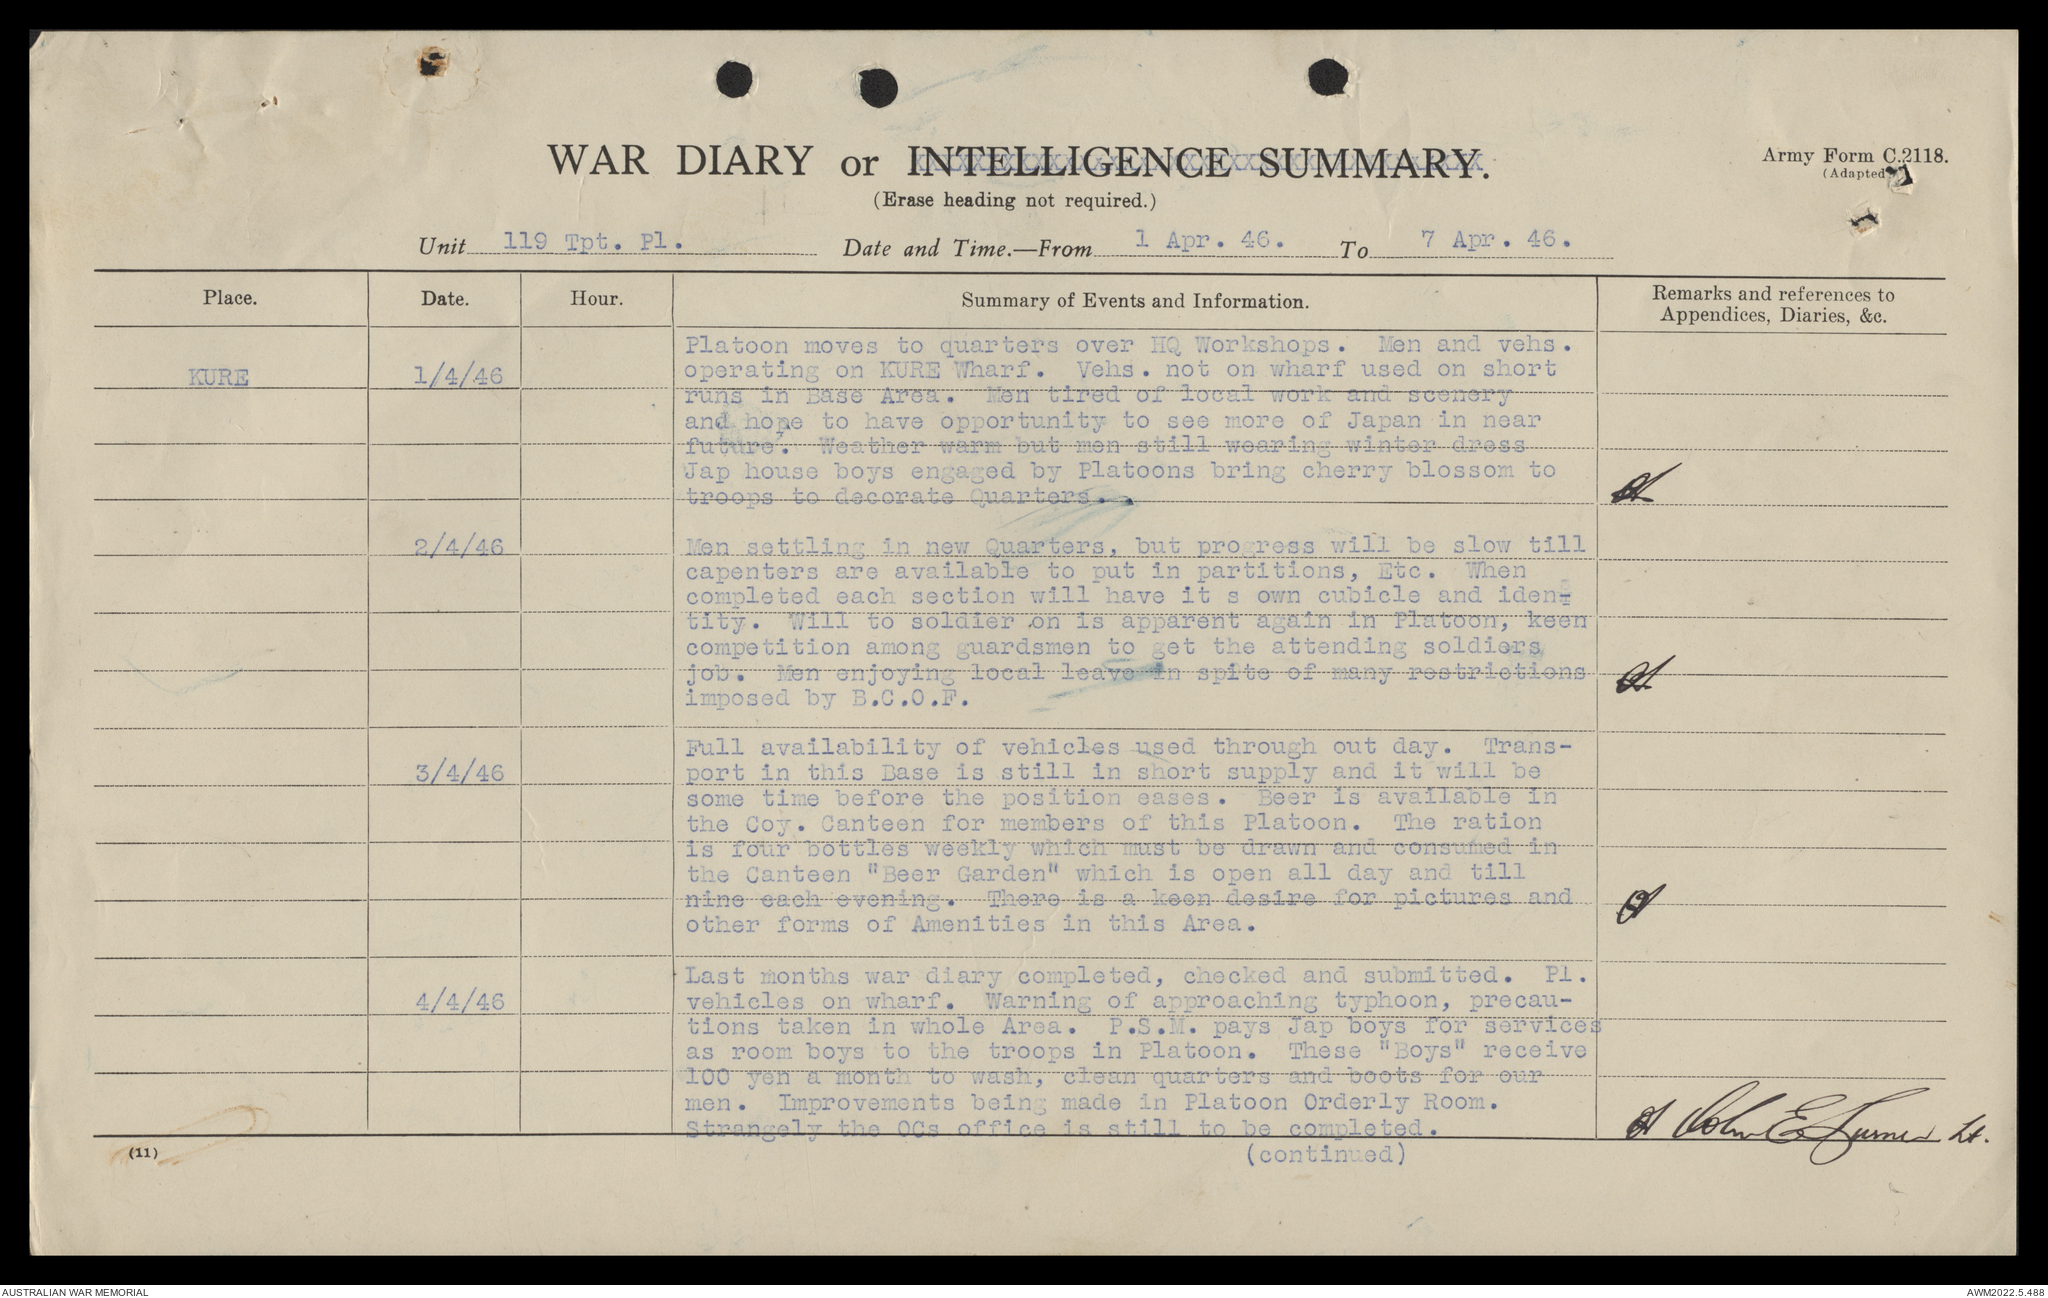 WAR DIARY or INTELLIGENCE SUMMARY.
(Erase heading not required.)
Army Form C.2118.
(Adapted
Unit 119 Tpt. Pl. Date and Time.—From 1 Apr. 46. To 7 Apr. 46.
Place. Date. Hour. Summary of Events and Information. Remarks and references to
Appendices, Diaries, &c.
Platoon moves to quarters over HQ Workshops. Men and vehs.
KURE 1/4/46 operating on KURE Wharf. Vehs. not on wharf used on short
runs in Base Area. Men tired of local work and scenery
and hope to have opportunity to see more of Japan in near
future. Weather warm but men still wearing winter dress
Jap house boys engaged by Platoons bring cherry blossom to
troops to decorate Quarters.
2/4/46 Men settling in new Quarters, but progress will be slow till
capenters are available to put in partitions, Etc. When
completed each section will have it s own cubicle and iden-
tity. Will to soldier on is apparent again in Platoon, keen
competition among guardsmen to get the attending soldiers
job. Men enjoying local leave in spite of many restrictions
imposed by B.C.O.F.
Full availability of vehicles used through out day. Trans-
3/4/46 port in this Base is still in short supply and it will be
some time before the position eases. Beer is available in
the Coy. Canteen for members of this Platoon. The ration
is four bottles weekly which must be drawn and consumed in
the Canteen "Beer Garden" which is open all day and till
nine each evening. There is a keen desire for pictures and
other forms of Amenities in this Area.
Last months war diary completed, checked and submitted. Pl.
4/4/46 vehicles on wharf. Warning of approaching typhoon, precau-
tions taken in whole Area. P.S.M. pays Jap boys for services
as room boys to the troops in Platoon. These "Boys" receive
100 yen a month to wash, clean quarters and boots for our
men. Improvements being made in Platoon Orderly Room.
Strangely the OCs office is still to be completed.
John E Turner Lt.
(continued)
(11)
AUSTRALIAN WAR MEMORIAL
AWM2022.5.488